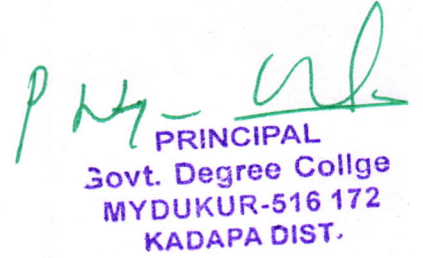 PRINCIPAL
Govt. Degree Collge
MYDUKUR-516 172
KADAPA DIST.